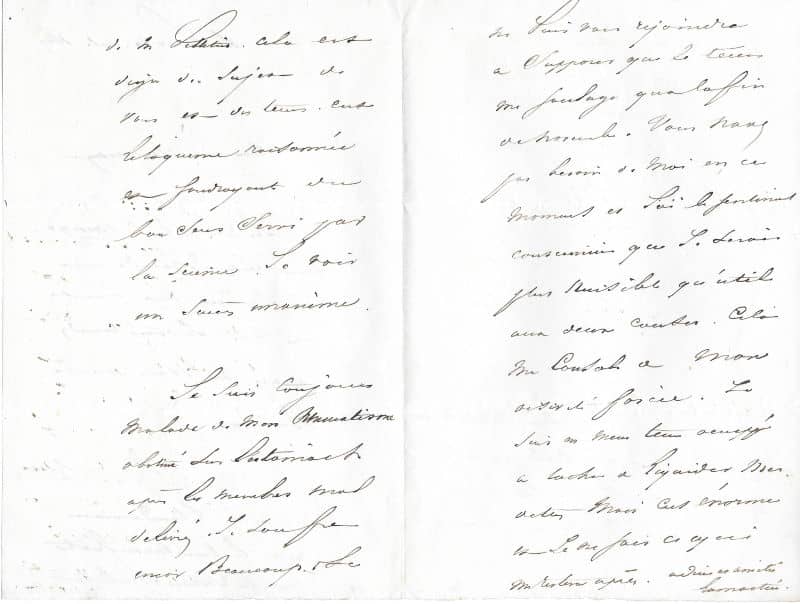 de M cela est
digne du sujet de
vous et des tems. C'est
l'eloquence raisonnée
et foudroyant du
bon sens servi par
la Je vois
un succès unanime.
Je suis toujours
malade de mon Rhumatisme
obstiné sur l'estomac
après les membres mal
délivré. Je souffre
encor Beaucoup. Je
ne puis vous rejoindre
a supposer que le tems
me soulage qu'a la fin
de Vous n'avez
pas besoin de moi en ce
moment et j'ai le sentiment
que Je serais
plus nuisible qu'utile
aux deux causes. Cela
me Console de mon
forcée. Je
suis en meme tems occupé
a tacher de liquider mes
dettes Mais c'est énorme
et Je ne sais ce qui
me restera après. adieu et amitié
Lamartine.